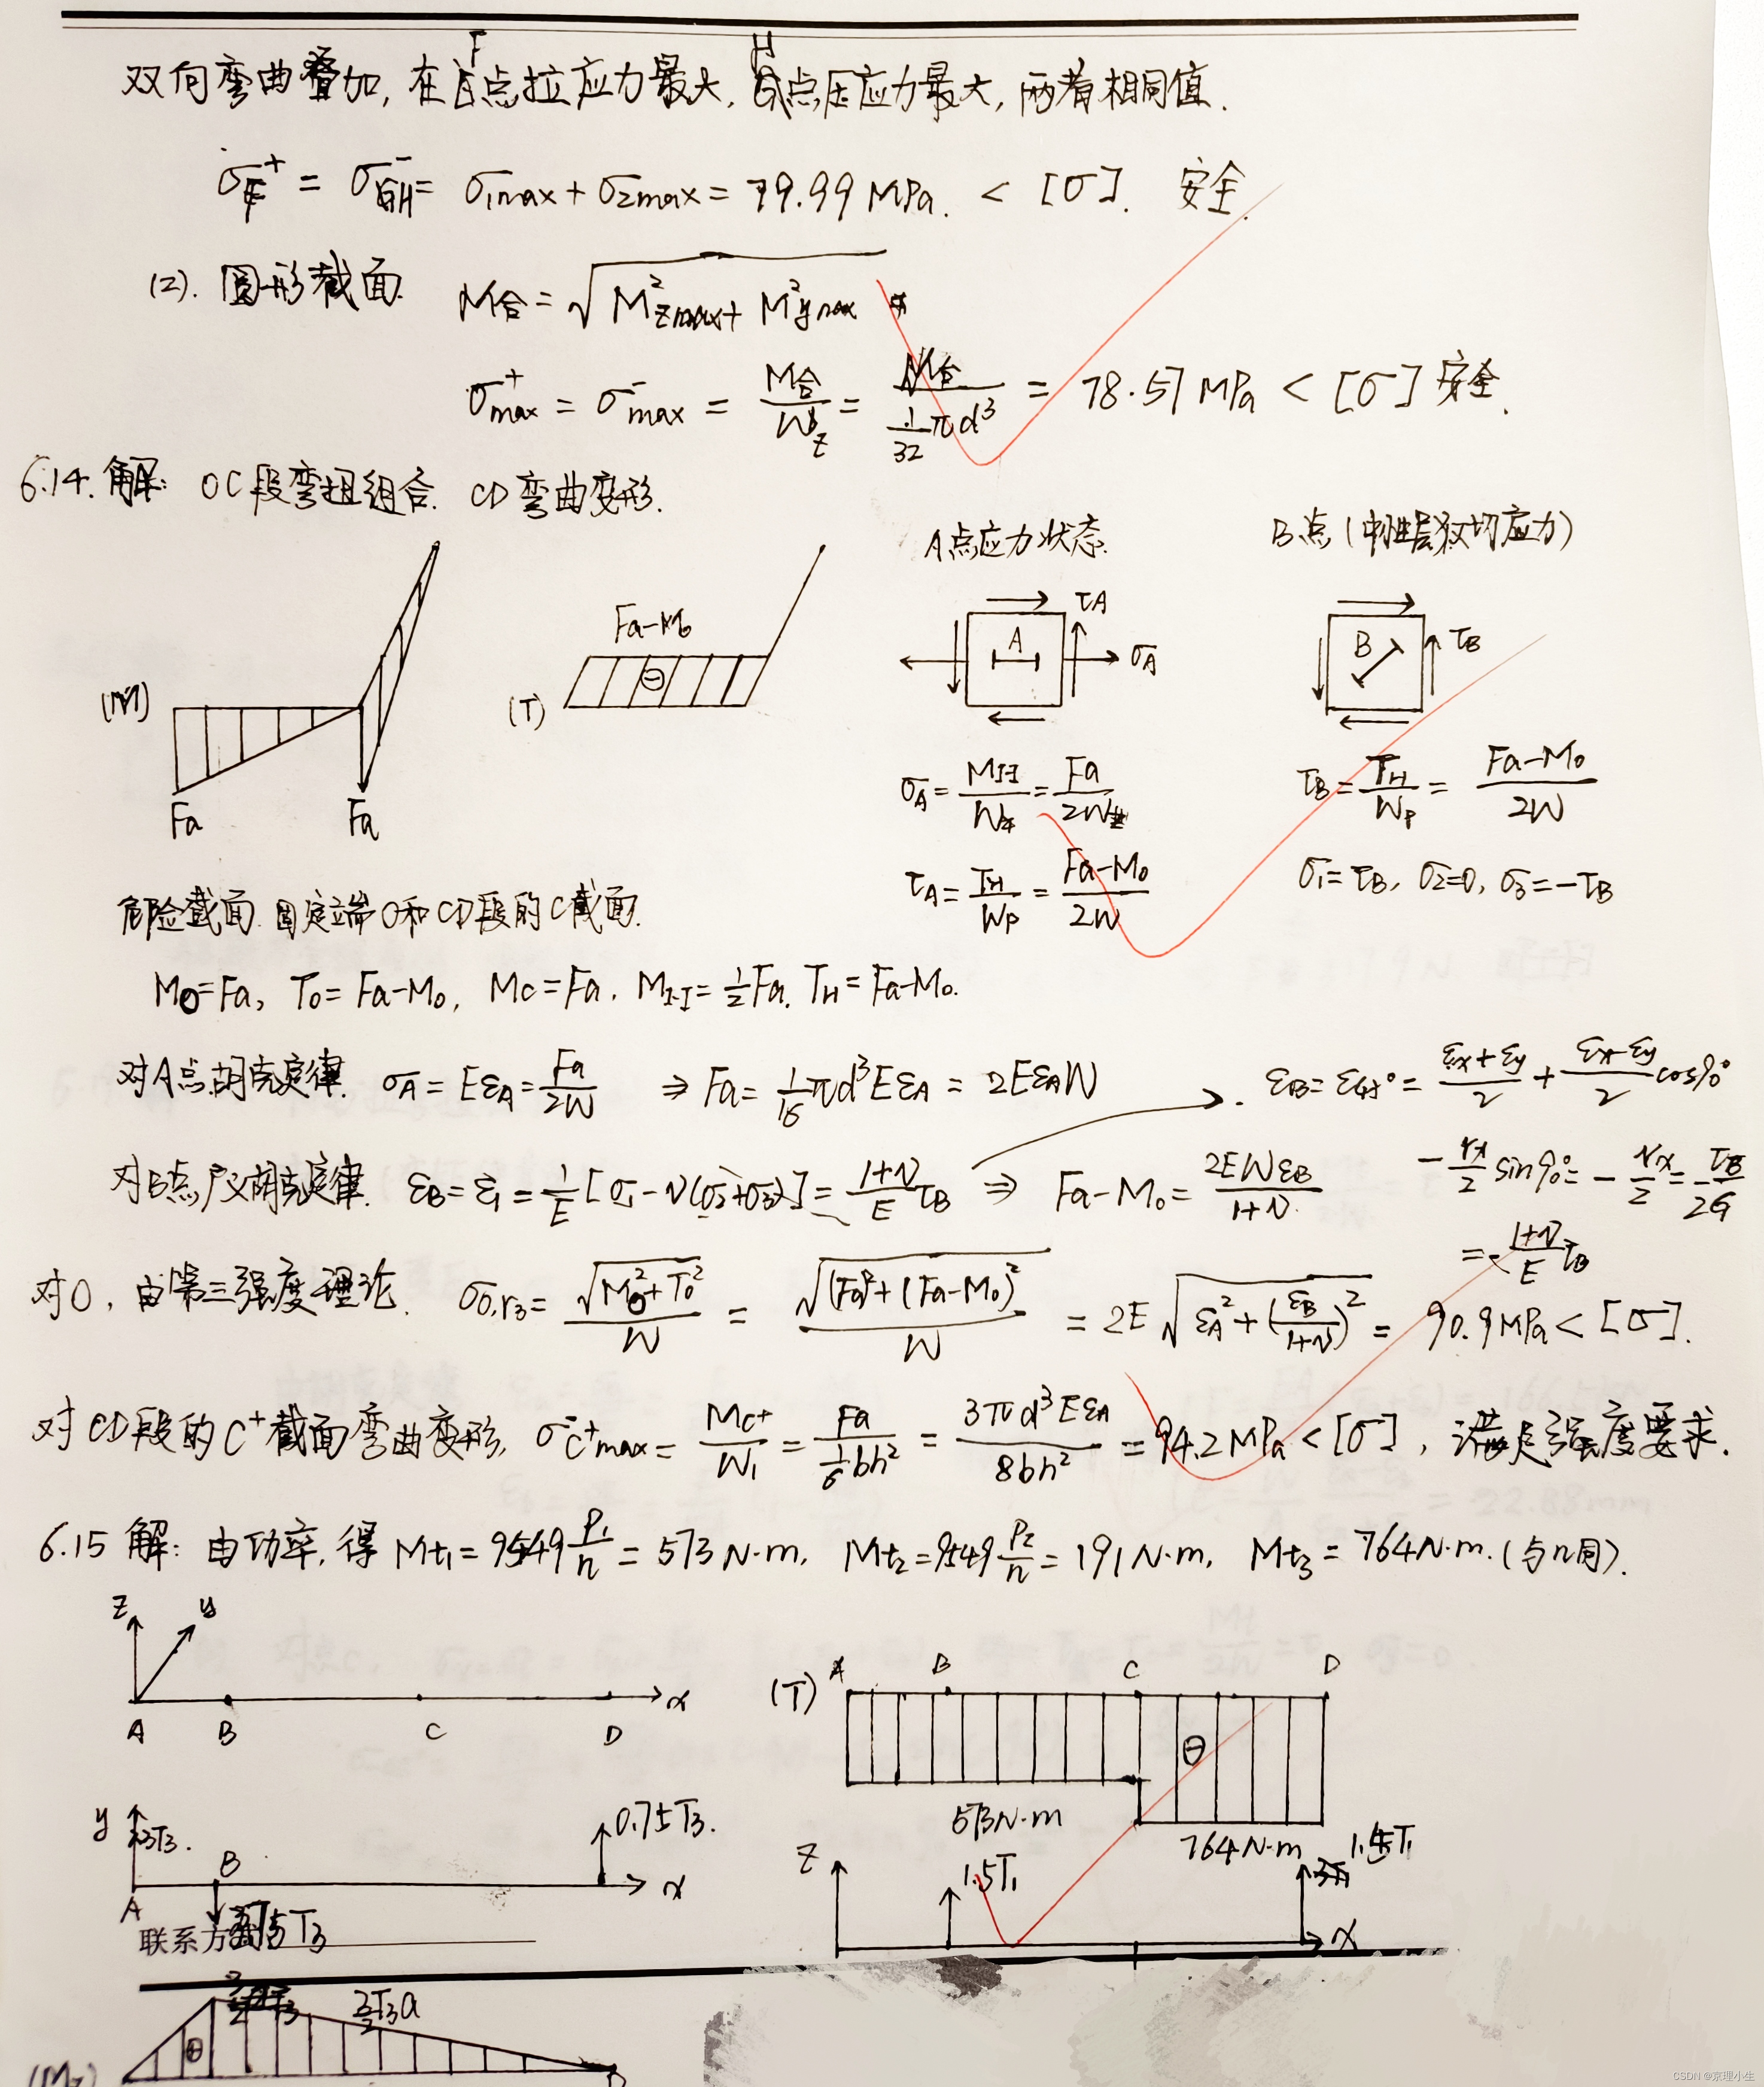 双向弯曲叠加, 在F点拉应力最大, H点压应力最大, 两者相同值.
σF⁺ = σH⁻ = σ1max + σ2max = 79.99 MPa. < [σ]. 安全.
(2). 圆形截面. M合 = √(M²zmax + M²ymax)
σ⁺max = σ⁻max = M合/Wz = M合/(1/32 πd³) = 78.57 MPa < [σ] 安全.
6.14. 解: OC段弯扭组合. CD弯曲变形.
A点应力状态.
B点 (中性层仅切应力)
(M) Fa Fa
(T) Fa-M0 ⊖
A τA σA
B τB
σA = MI-I/Wz = Fa/2W
τB = TH/Wp = (Fa-M0)/2W
τA = TH/Wp = (Fa-M0)/2W
σ1=τB, σ2=0, σ3=-τB
危险截面. 固定端O和CD段的C截面.
MO=Fa, T0=Fa-M0, Mc=Fa, MI-I=½Fa. TH=Fa-M0.
对A点胡克定律. σA = EεA = Fa/2W ⇒ Fa = 1/16 πd³EεA = 2EεAW
εB = ε45° = (εx+εy)/2 + (εx-εy)/2 cos90°
对B点广义胡克定律. εB = ε1 = 1/E [σ1-ν(σ2+σ3)] = (1+ν)/E τB ⇒ Fa-M0 = 2EWεB/(1+ν)
- γx/2 sin90° = - γx/2 = τB/2G
= (1+ν)/E τB
对O, 由第三强度理论. σO,r3 = √(MO²+T0²)/W = √((Fa)²+(Fa-M0)²)/W = 2E√(εA²+(εB/(1+ν))²) = 90.9MPa < [σ].
对CD段的C⁺截面弯曲变形, σC⁺max = MC⁺/W1 = Fa/(1/6 bh²) = 3πd³EεA/8bh² = 94.2MPa < [σ], 满足强度要求.
6.15 解: 由功率, 得 Mt1 = 9549 P1/n = 573 N·m, Mt2 = 9549 P2/n = 191 N·m, Mt3 = 764 N·m. (与n同).
z y x
A B C D
(T) A B C D
⊖
573N·m
764N·m
y 3T3. B 0.75T3. x
A
z 1.5T1 1.5T1 x
联系方
3.75T3
3/2 T3a
⊕
(Mz) D
CSDN @京理小生